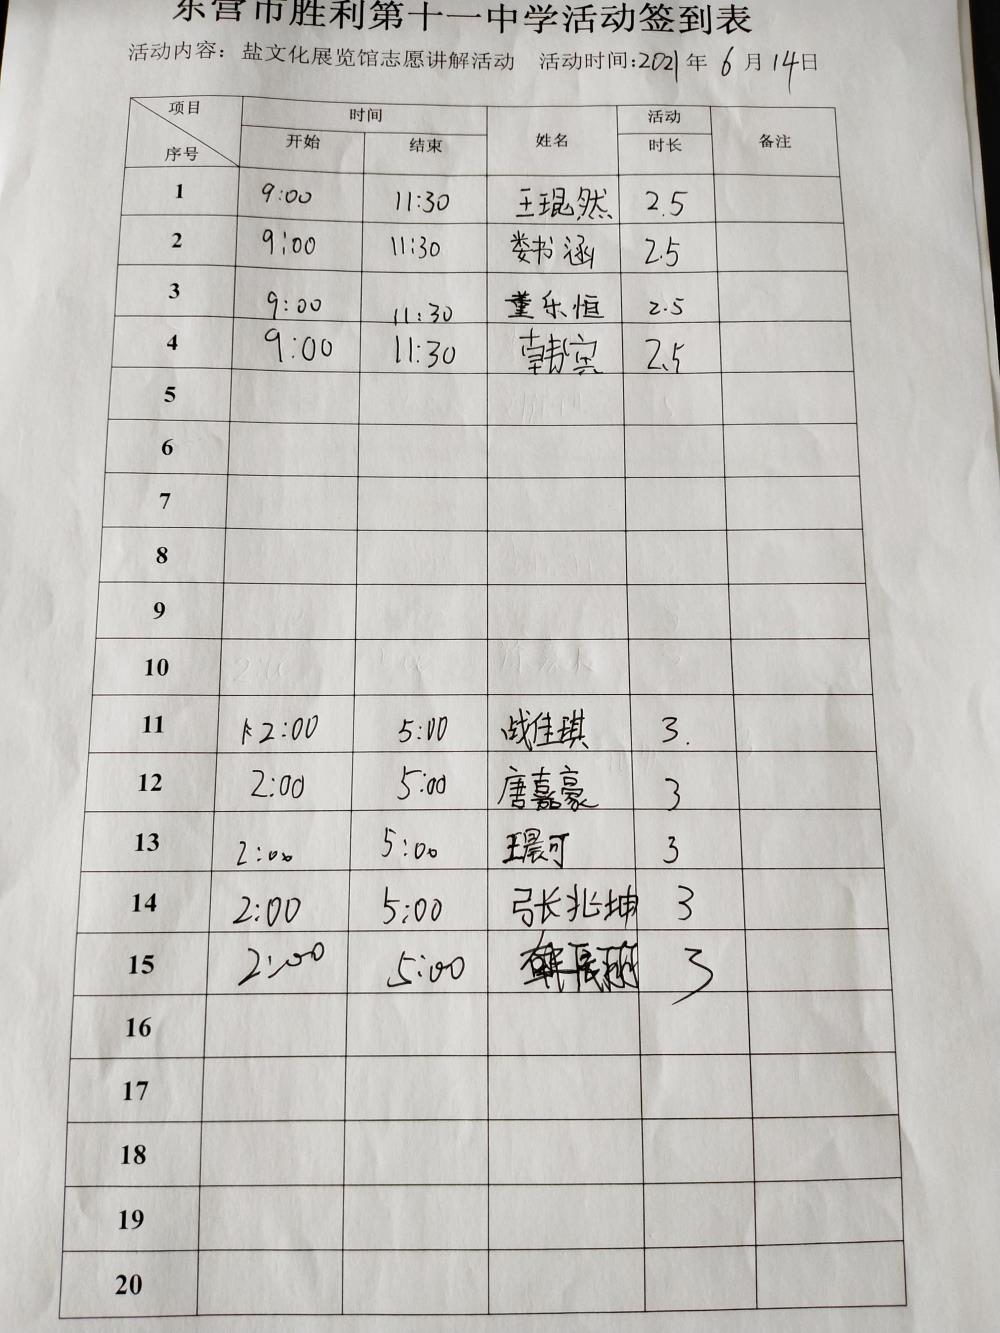 东营市胜利第十一中学活动签到表
活动内容：盐文化展览馆志愿讲解活动 活动时间:2021年6月14日
项目 时间 姓名 活动 备注
序号 开始 结束 时长
1 9:00 11:30 王琨然 2.5
2 9:00 11:30 娄书涵 2.5
3 9:00 11:30 董乐恒 2.5
4 9:00 11:30 韩宾 2.5
5
6
7
8
9
10
11 2:00 5:00 战佳琪 3.
12 2:00 5:00 唐嘉豪 3
13 2:00 5:00 王晨可 3
14 2:00 5:00 张兆坤 3
15 2:00 5:00 3
16
17
18
19
20